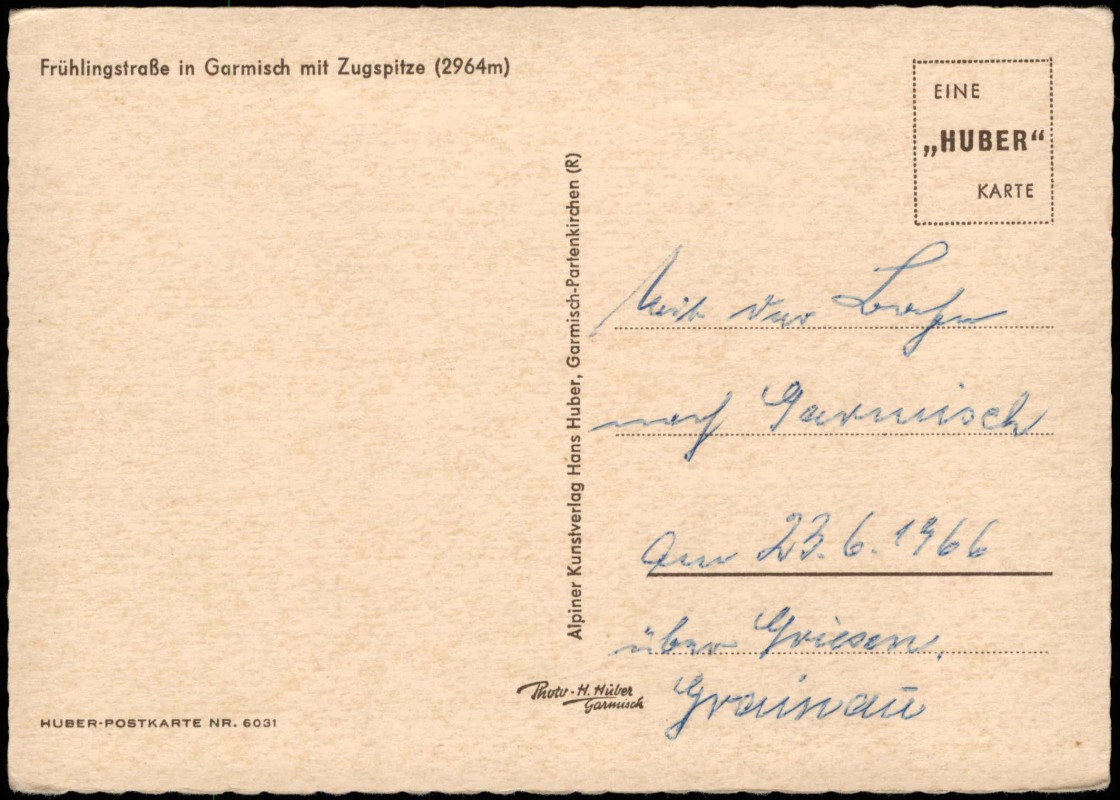 Frühlingstraße in Garmisch mit Zugspitze (2964m)
EINE
„HUBER“
KARTE
Alpiner Kunstverlag Hans Huber, Garmisch-Partenkirchen (R)
Mit der Bahn
nach Garmisch
am 23.6.1966
über Griesen,
Grainau
Photo-H. Huber
Garmisch
HUBER-POSTKARTE NR. 6031